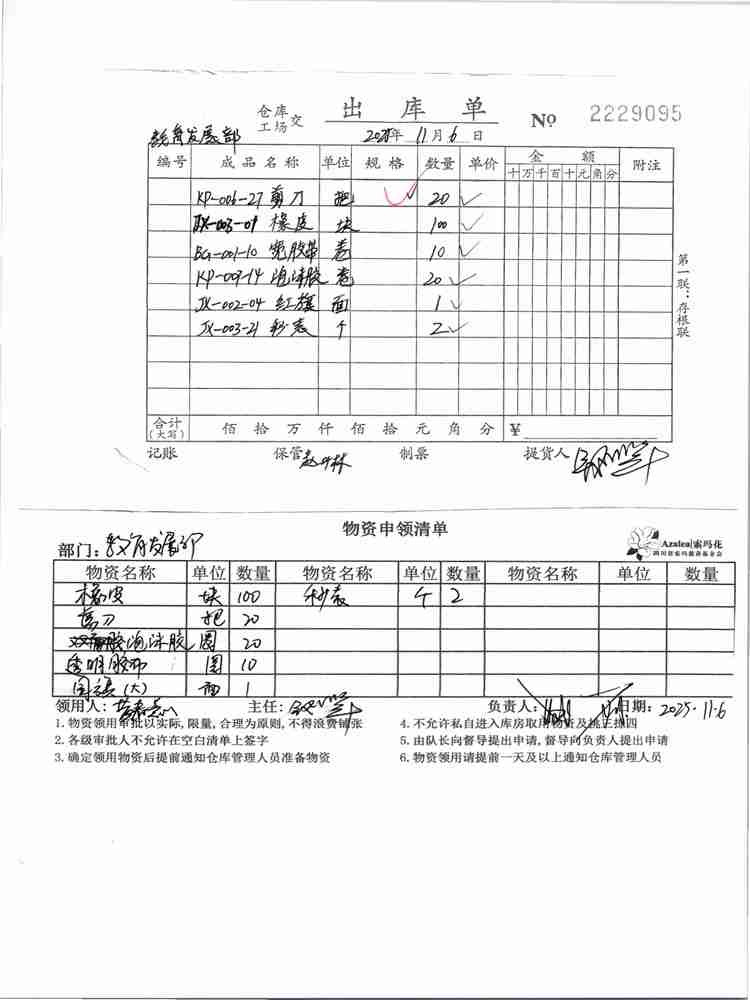 出库单
仓库
工场 交
No 2229095
教育发展部
2025年 11月 6日
编号 成品名称 单位 规格 数量 单价 金额 附注
十 万 千 百 十 元 角 分
KP-006-27 剪刀 把 20
JX-003-01 橡皮 块 100
BG-001-10 宽胶带 卷 10
KP-009-14 泡沫胶 卷 20
JX-002-04 红旗 面 1
JX-003-21 秒表 个 2
第一联：存根联
合计（大写） 佰 拾 万 仟 佰 拾 元 角 分 ¥
记账 保管 制票 提货人
物资申领清单
Azalea|索玛花
部门：教育发展部
物资名称 单位 数量 物资名称 单位 数量 物资名称 单位 数量
橡皮 块 100 秒表 个 2
剪刀 把 20
泡沫胶 圈 20
透明胶布 圈 10
国旗（大） 面 1
领用人： 主任： 负责人： 日期：2025.11.6
1.物资领用审批以实际，限量，合理为原则，不得浪费铺张
2.各级审批人不允许在空白清单上签字
3.确定领用物资后提前通知仓库管理人员准备物资
4.不允许私自进入库房取用物资及挑三拣四
5.由队长向督导提出申请，督导向负责人提出申请
6.物资领用请提前一天及以上通知仓库管理人员